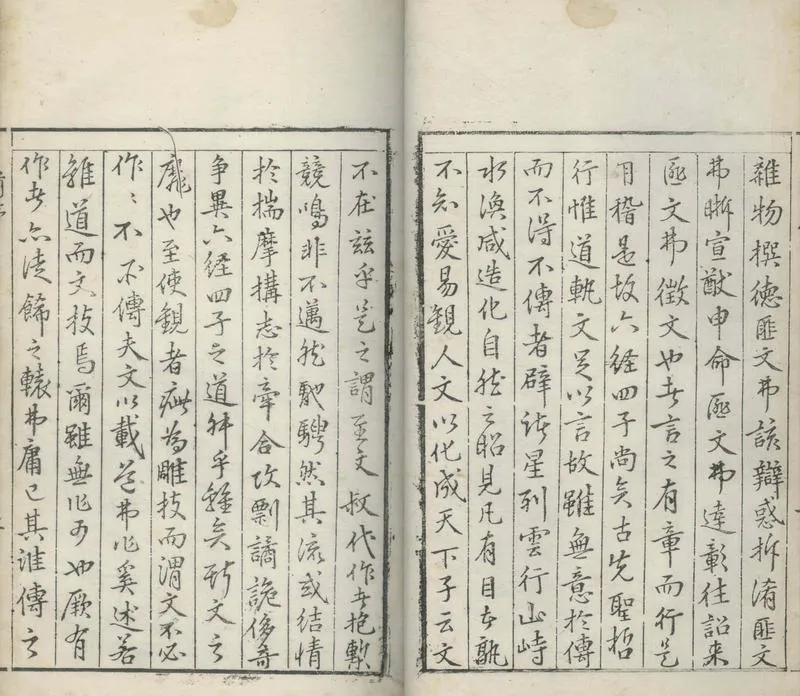 雜物撰德匪文弗該辯惑拆淆匪文
弗晰宣猷申命匪文弗達彰往詔来
匪文弗徵文也者言之有章而行之
有稽是故六経四子尚矣古先聖哲
行惟道軌文足以言故雖無意於傳
而不得不傳者辟諸星列雲行山峙
水渙咸造化自然之昭見凡有目者孰
不知愛易觀人文以化成天下子云文
不在茲乎是之謂至文叔代作者抱
競鳴非不邁然馳騁然其流或結情
於揣摩搆志於牽合攻剽譎詭侈奇
争異六経四子之道舛乎雜矣斯文之
靡也至使観者疵為雕技而謂文不必
作〻不必傳夫文以載道弗作奚述若
雜道而文技焉爾雖無作可也厥有
作者亦徒餙之轅弗庸已其誰傳之